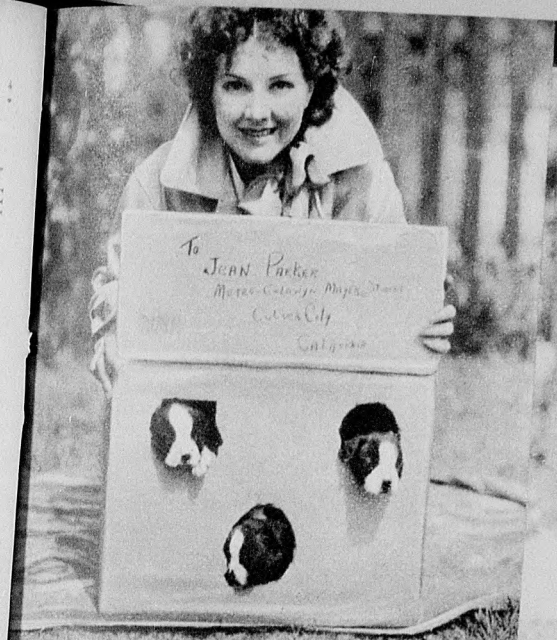 To
JEAN PARKER
Metro-Goldwyn Mayer Studios
Culver City
California